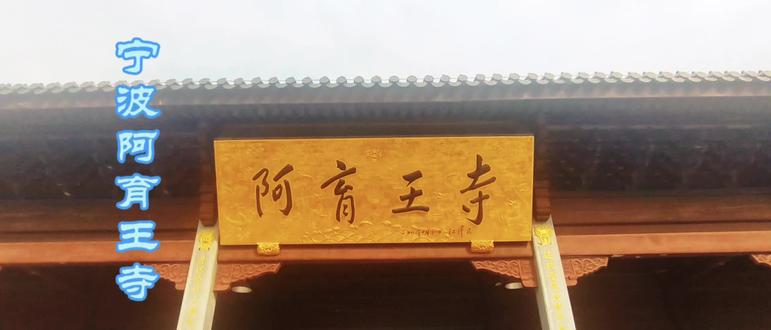 宁波阿育王寺
阿育王寺